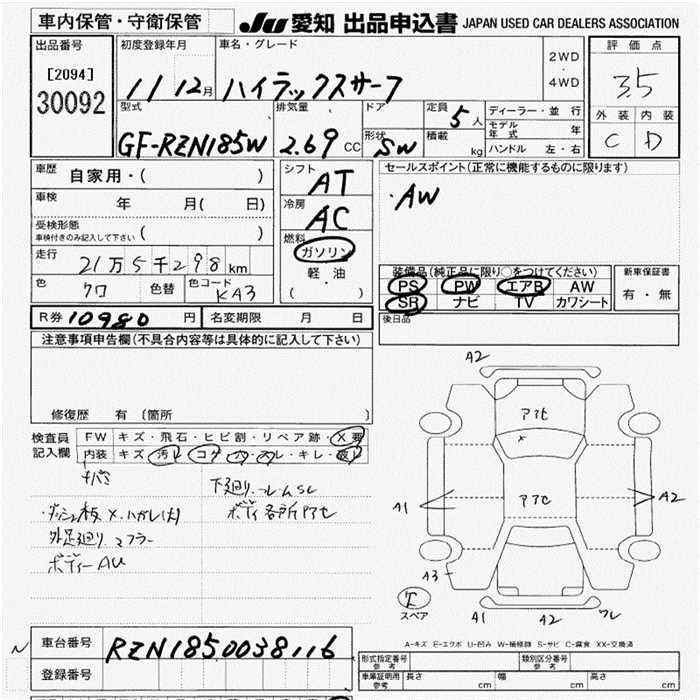 車内保管・守衛保管
JU 愛知 出品申込書 JAPAN USED CAR DEALERS ASSOCIATION
出品番号
[2094]
30092
初度登録年月
11 12月
車名・グレード
ハイラックスサーフ
2WD
・
4WD
評価点
3.5
外装 内装
C D
型式
GF-RZN185W
排気量
2.69 CC
ドア
形状
SW
定員
5人
積載
kg
ディーラー・並行
モデル年式 年
ハンドル 左・右
車歴
自家用・( )
車検
年 月( 日)
受検形態
車検付きのみ記入して下さい ( )
走行
21万5千298km
色
クロ
色替
色コード
KA3
シフト
AT
冷房
AC
燃料
ガソリン
軽・油
( )
セールスポイント(正常に機能するものに限ります)
・AW
装備品(純正品に限り○をつけてください)
PS PW エアB AW
SR ナビ TV カワシート
新車保証書
有・無
後日品
R券 10980円
名変期限 月 日
注意事項申告欄(不具合内容等は具体的に記入して下さい)
修復歴 有 〔箇所 〕
検査員
記入欄
FW キズ・飛石・ヒビ割・リペア跡・X要
内装 キズ・汚し・コゲ・穴・スレ・キレ・破レ
下廻り・フレムSC
・ダッシュ板 X、ハガレ(大)
ボディ各所アアセ
外足廻り マフラー
ボディーAU
A2
アアセ
x
アアC
A1
A2
A3
スペア
A1
A2
ワレ
A-キズ E-エクボ U-凹み W-補修跡 S-サビ C-腐食 XX-交換済
N
車台番号 RZN185 0038116
登録番号
形式指定番号
参考
類別区分番号
参考
車庫証明用
参考
長さ cm
幅 cm
高さ cm